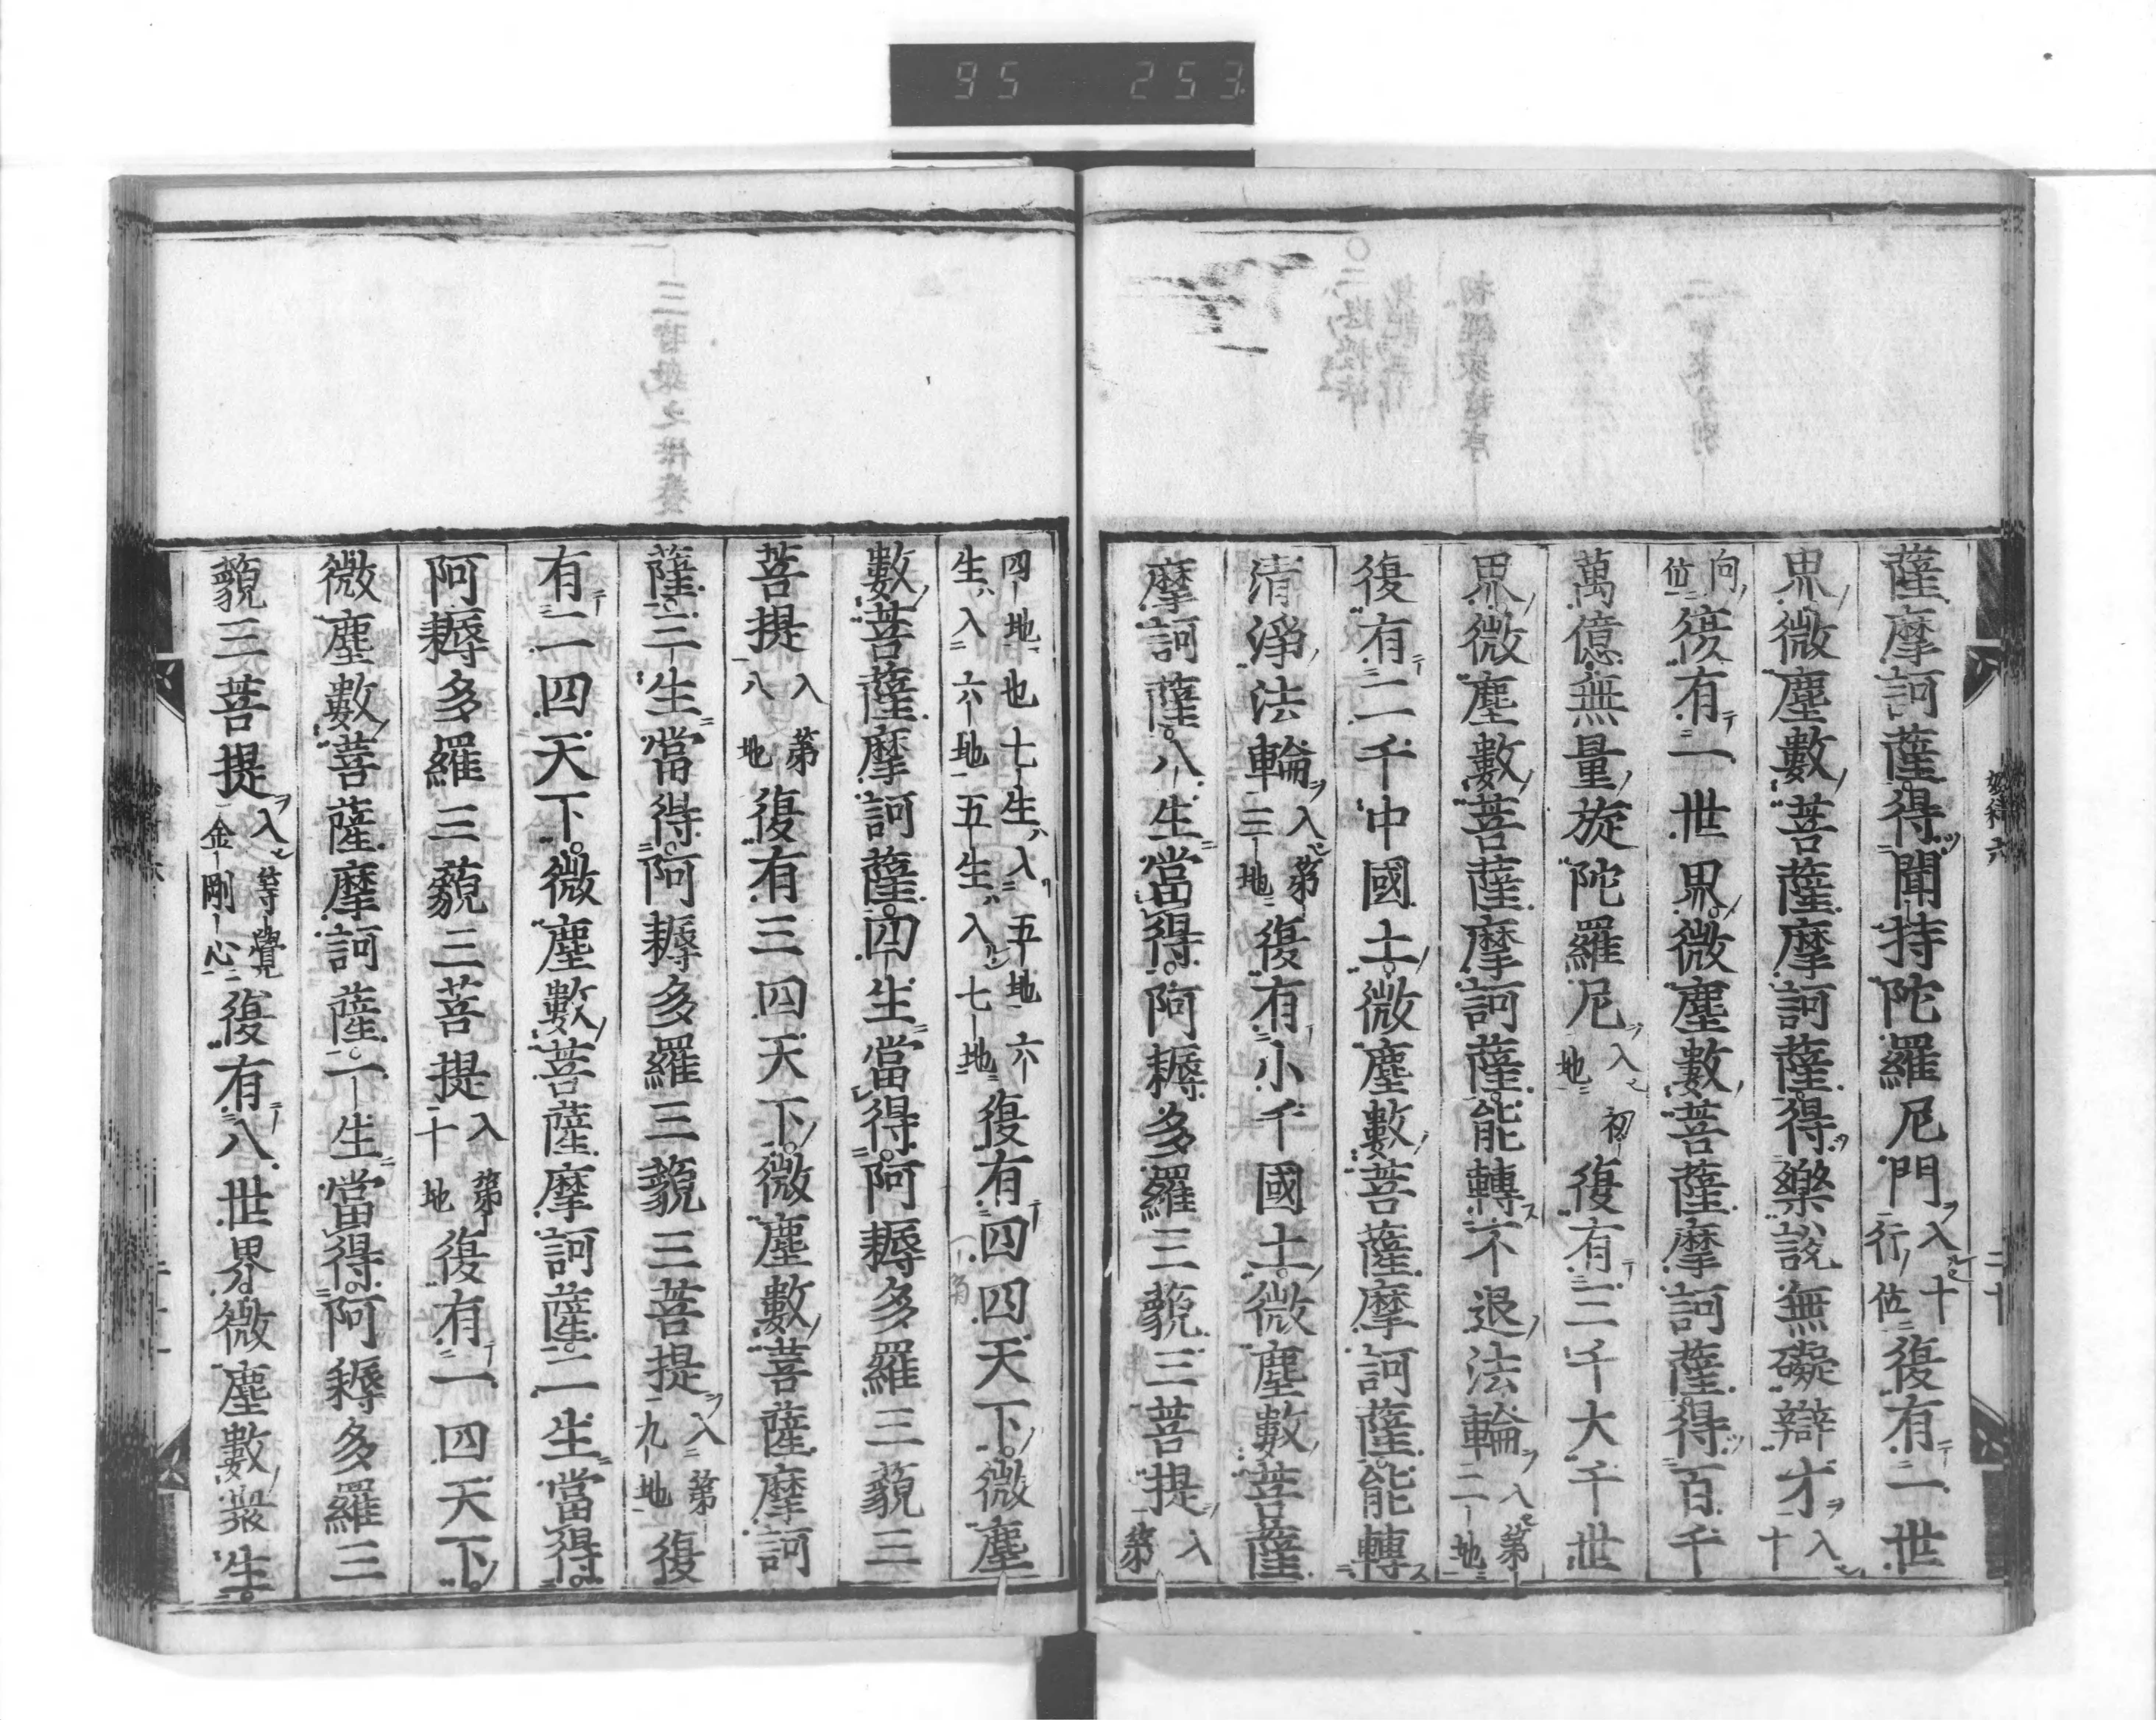 95 253
薩摩訶薩得聞持陀羅尼門入十行位復有一世
界微塵數菩薩摩訶薩得樂說無礙辯才入十
向位復有一世界微塵數菩薩摩訶薩得百千
萬億無量旋陀羅尼入初地復有三千大千世
界微塵數菩薩摩訶薩能轉不退法輪入第二地
復有二千中國土微塵數菩薩摩訶薩能轉
清淨法輪入第三地復有小千國土微塵數菩薩
摩訶薩八生當得阿耨多羅三藐三菩提入第
四地也七生入五地六生入六地五生入七地復有四四天下微塵
數菩薩摩訶薩四生當得阿耨多羅三藐三
菩提入第八地復有三四天下微塵數菩薩摩訶
薩三生當得阿耨多羅三藐三菩提入第九地復
有二四天下微塵數菩薩摩訶薩二生當得
阿耨多羅三藐三菩提入第十地復有一四天下
微塵數菩薩摩訶薩一生當得阿耨多羅三
藐三菩提入等覺金剛心復有八世界微塵數衆生